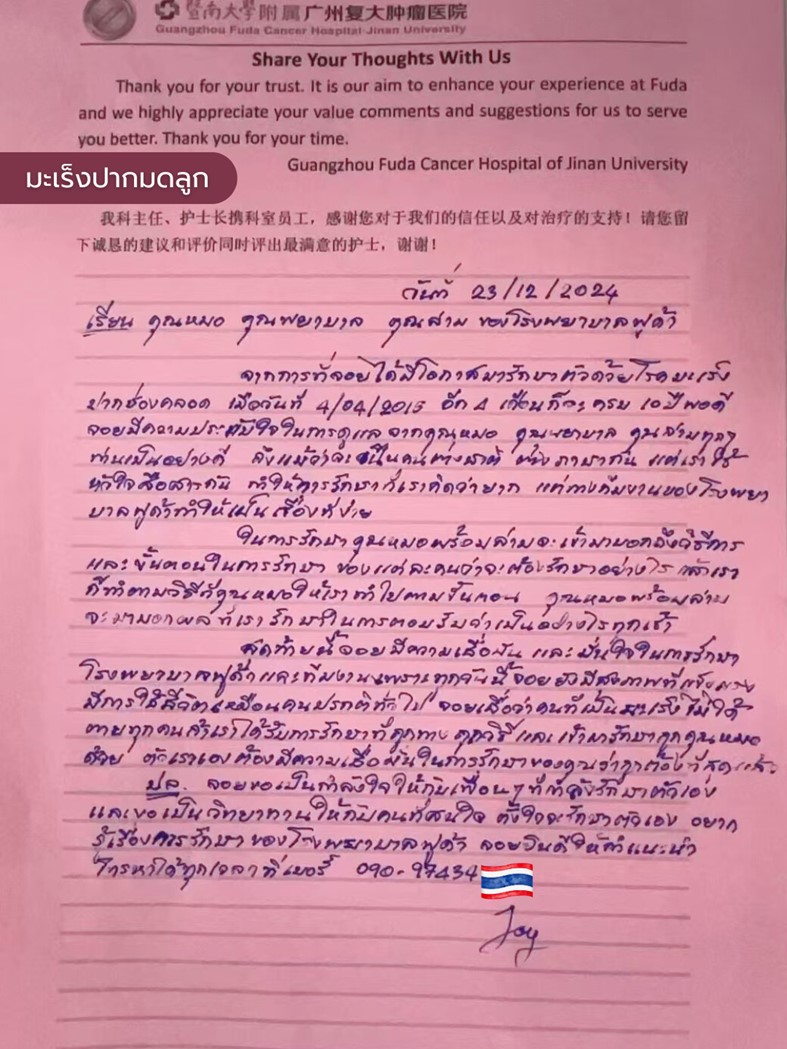 暨南大学附属广州复大肿瘤医院
Guangzhou Fuda Cancer Hospital·Jinan University
Share Your Thoughts With Us
Thank you for your trust. It is our aim to enhance your experience at Fuda
and we highly appreciate your value comments and suggestions for us to serve
you better. Thank you for your time.
Guangzhou Fuda Cancer Hospital of Jinan University
มะเร็งปากมดลูก
我科主任、护士长携科室员工，感谢您对于我们的信任以及对治疗的支持！请您留
下诚恳的建议和评价同时评出最满意的护士，谢谢！
วันที่ 23/12/2024
เรียน คุณหมอ คุณพยาบาล คุณล่าม ของโรงพยาบาลฟูด้า
จากการที่จอยได้มีโอกาสมารักษาตัวด้วยโรคมะเร็ง
ปากช่องคลอด เมื่อวันที่ 4/04/2015 อีก 4 เดือนก็จะครบ 10 ปีพอดี
จอยมีความประทับใจในการดูแล จากคุณหมอ คุณพยาบาล คุณล่ามทุกๆ
ท่านเป็นอย่างดี ถึงแม้ว่าจะเป็นคนต่างชาติ ต่างภาษากัน แต่เราใช้
หัวใจสื่อสารกัน ทำให้การรักษาที่เราคิดว่ายาก แต่ทางทีมงานของโรงพยา
บาลฟูด้าทำให้เป็นเรื่องที่ง่าย
ในการรักษาคุณหมอพร้อมล่ามจะเข้ามาบอกถึงวิธีการ
และขั้นตอนในการรักษา ของแต่ละคนว่าจะต้องรักษาอย่างไร แล้วเรา
ก็ทำตามวิธีที่คุณหมอให้เราทำไปตามขั้นตอน คุณหมอพร้อมล่าม
จะมาบอกผลที่เรารักษาในการตอบรับว่าเป็นอย่างไรทุกเช้า
สุดท้ายนี้จอยมีความเชื่อมั่น และมั่นใจในการรักษา
โรงพยาบาลฟูด้าและทีมงานเพราะทุกวันนี้จอยยังมีสุขภาพที่แข็งแรง
มีการใช้ชีวิตเหมือนคนปรกติทั่วไป จอยเชื่อว่าคนที่เป็นมะเร็งไม่ได้
ตายทุกคนถ้าเราได้รับการรักษาที่ถูกทาง ถูกวิธี และเข้ามารักษาถูกคุณหมอ
ด้วย ตัวเราเองต้องมีความเชื่อมั่นในการรักษาของคุณว่าถูกต้องที่สุดแล้ว
ปล. จอยขอเป็นกำลังใจให้กับเพื่อนๆที่กำลังรักษาตัวเอง
และขอเป็นวิทยาทานให้กับคนที่สนใจ ตั้งใจจะรักษาตัวเอง อยาก
รู้เรื่องการรักษาของโรงพยาบาลฟูด้า จอยยินดีให้คำแนะนำ
โทรหาได้ทุกเวลาที่เบอร์ 090-97434
Joy